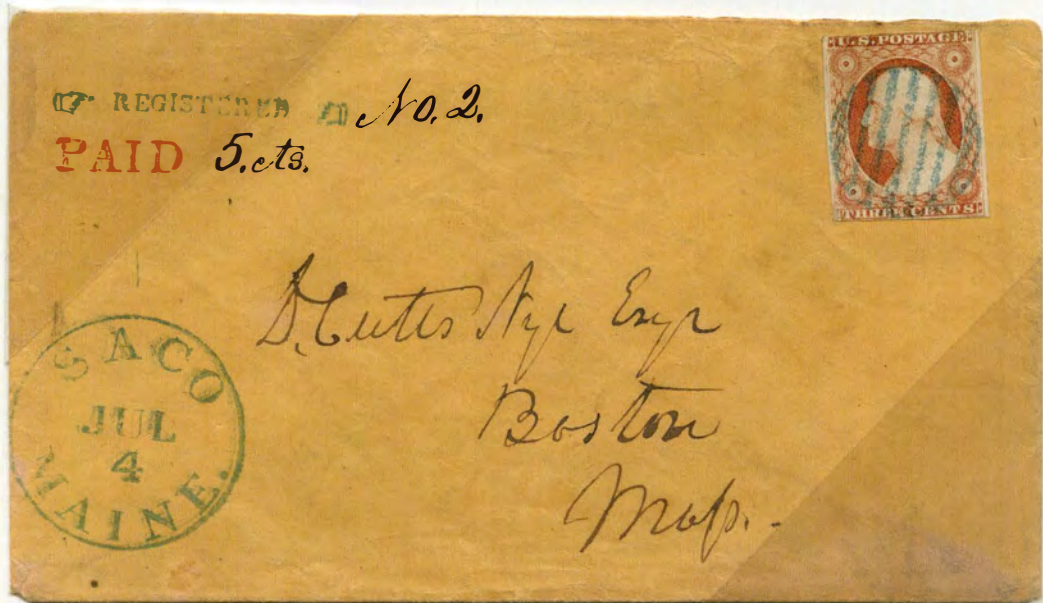 U.S. POSTAGE
THREE CENTS
REGISTERED No. 2.
PAID 5. cts.
D. Cutts Nye Esqr
Boston
Mass.
SACO
JUL
4
MAINE.